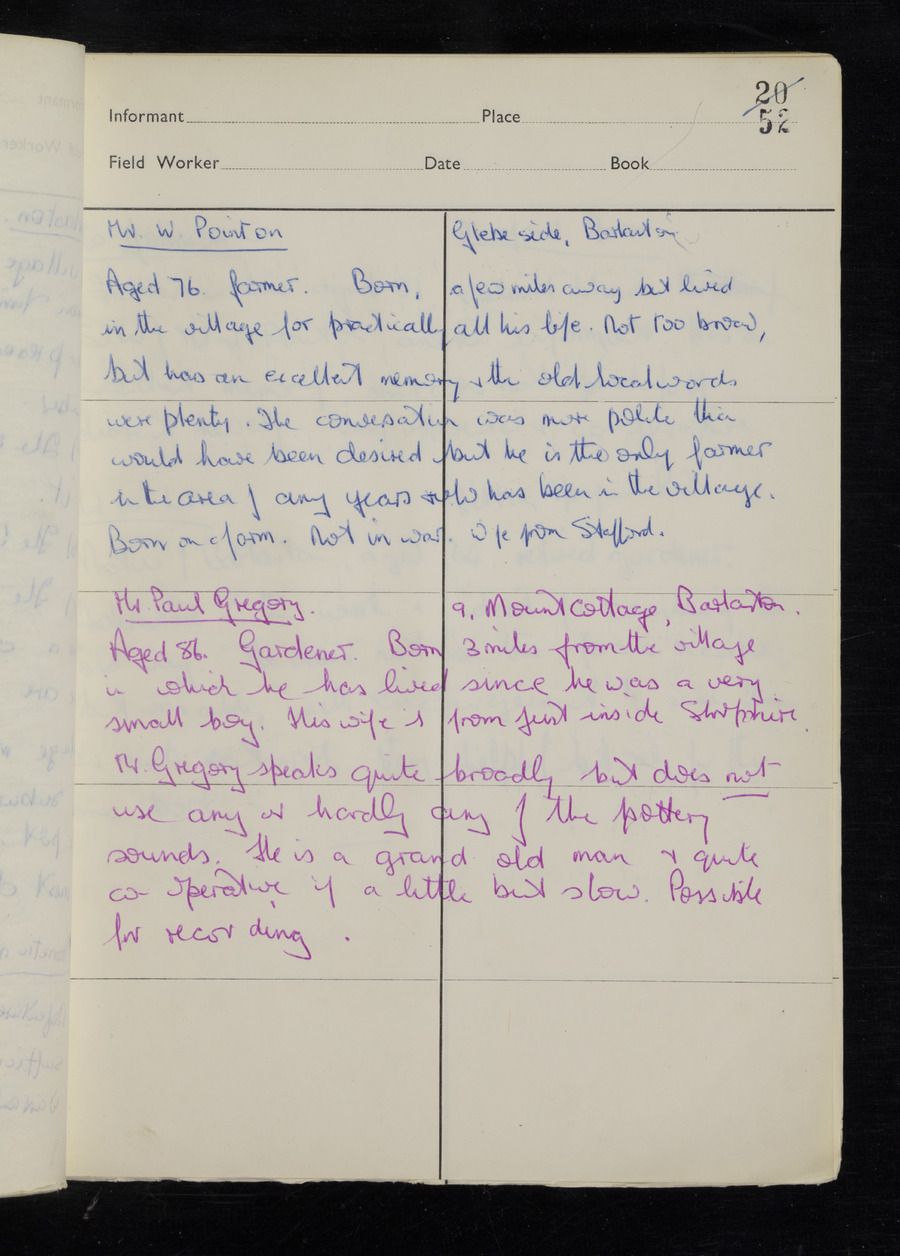 20
52
Informant Place
Field Worker Date Book
Mr. W. Pointon Glebe side, Barlaston
Aged 76. farmer. Born, a few miles away but lived
in the village for practically all his life. Not too broad,
but has an excellent memory & the old local words
were plenty. The conversation was more polite than
would have been desired but he is the only farmer
in the area of any years & who has been in the village.
Born on a farm. Not in war. Wife from Stafford.
Mr. Paul Gregory. 9, Mount Cottage, Barlaston.
Aged 86. Gardener. Born 3 miles from the village
in which he has lived since he was a very
small boy. His wife is from just inside Shropshire
Mr. Gregory speaks quite broadly but does not
use any or hardly any of the pottery
sounds. He is a grand old man & quite
co-operative if a little bit slow. Possible
for recording.